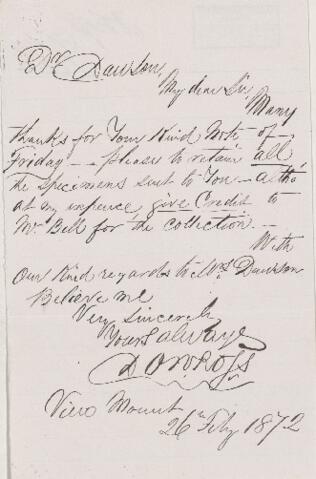 Dr Dawson,
My dear Sir,
Many
thanks for Your Kind Note of
Friday — please to retain all
the specimens sent to You — altho'
at my expence, give Credit to
Mr Bell for the collection —
With
Our Kind regards to Mrs Dawson
Believe me
Very Sincerely
Yours always
View Mount
26th Feby 1872